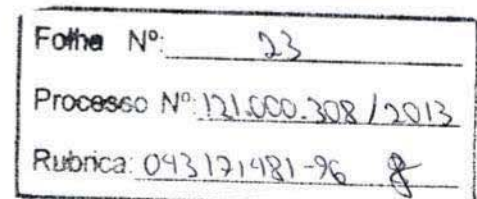 Folha Nº: 23
Processo Nº: 121.000.308 / 2013
Rubrica: 043171481-96